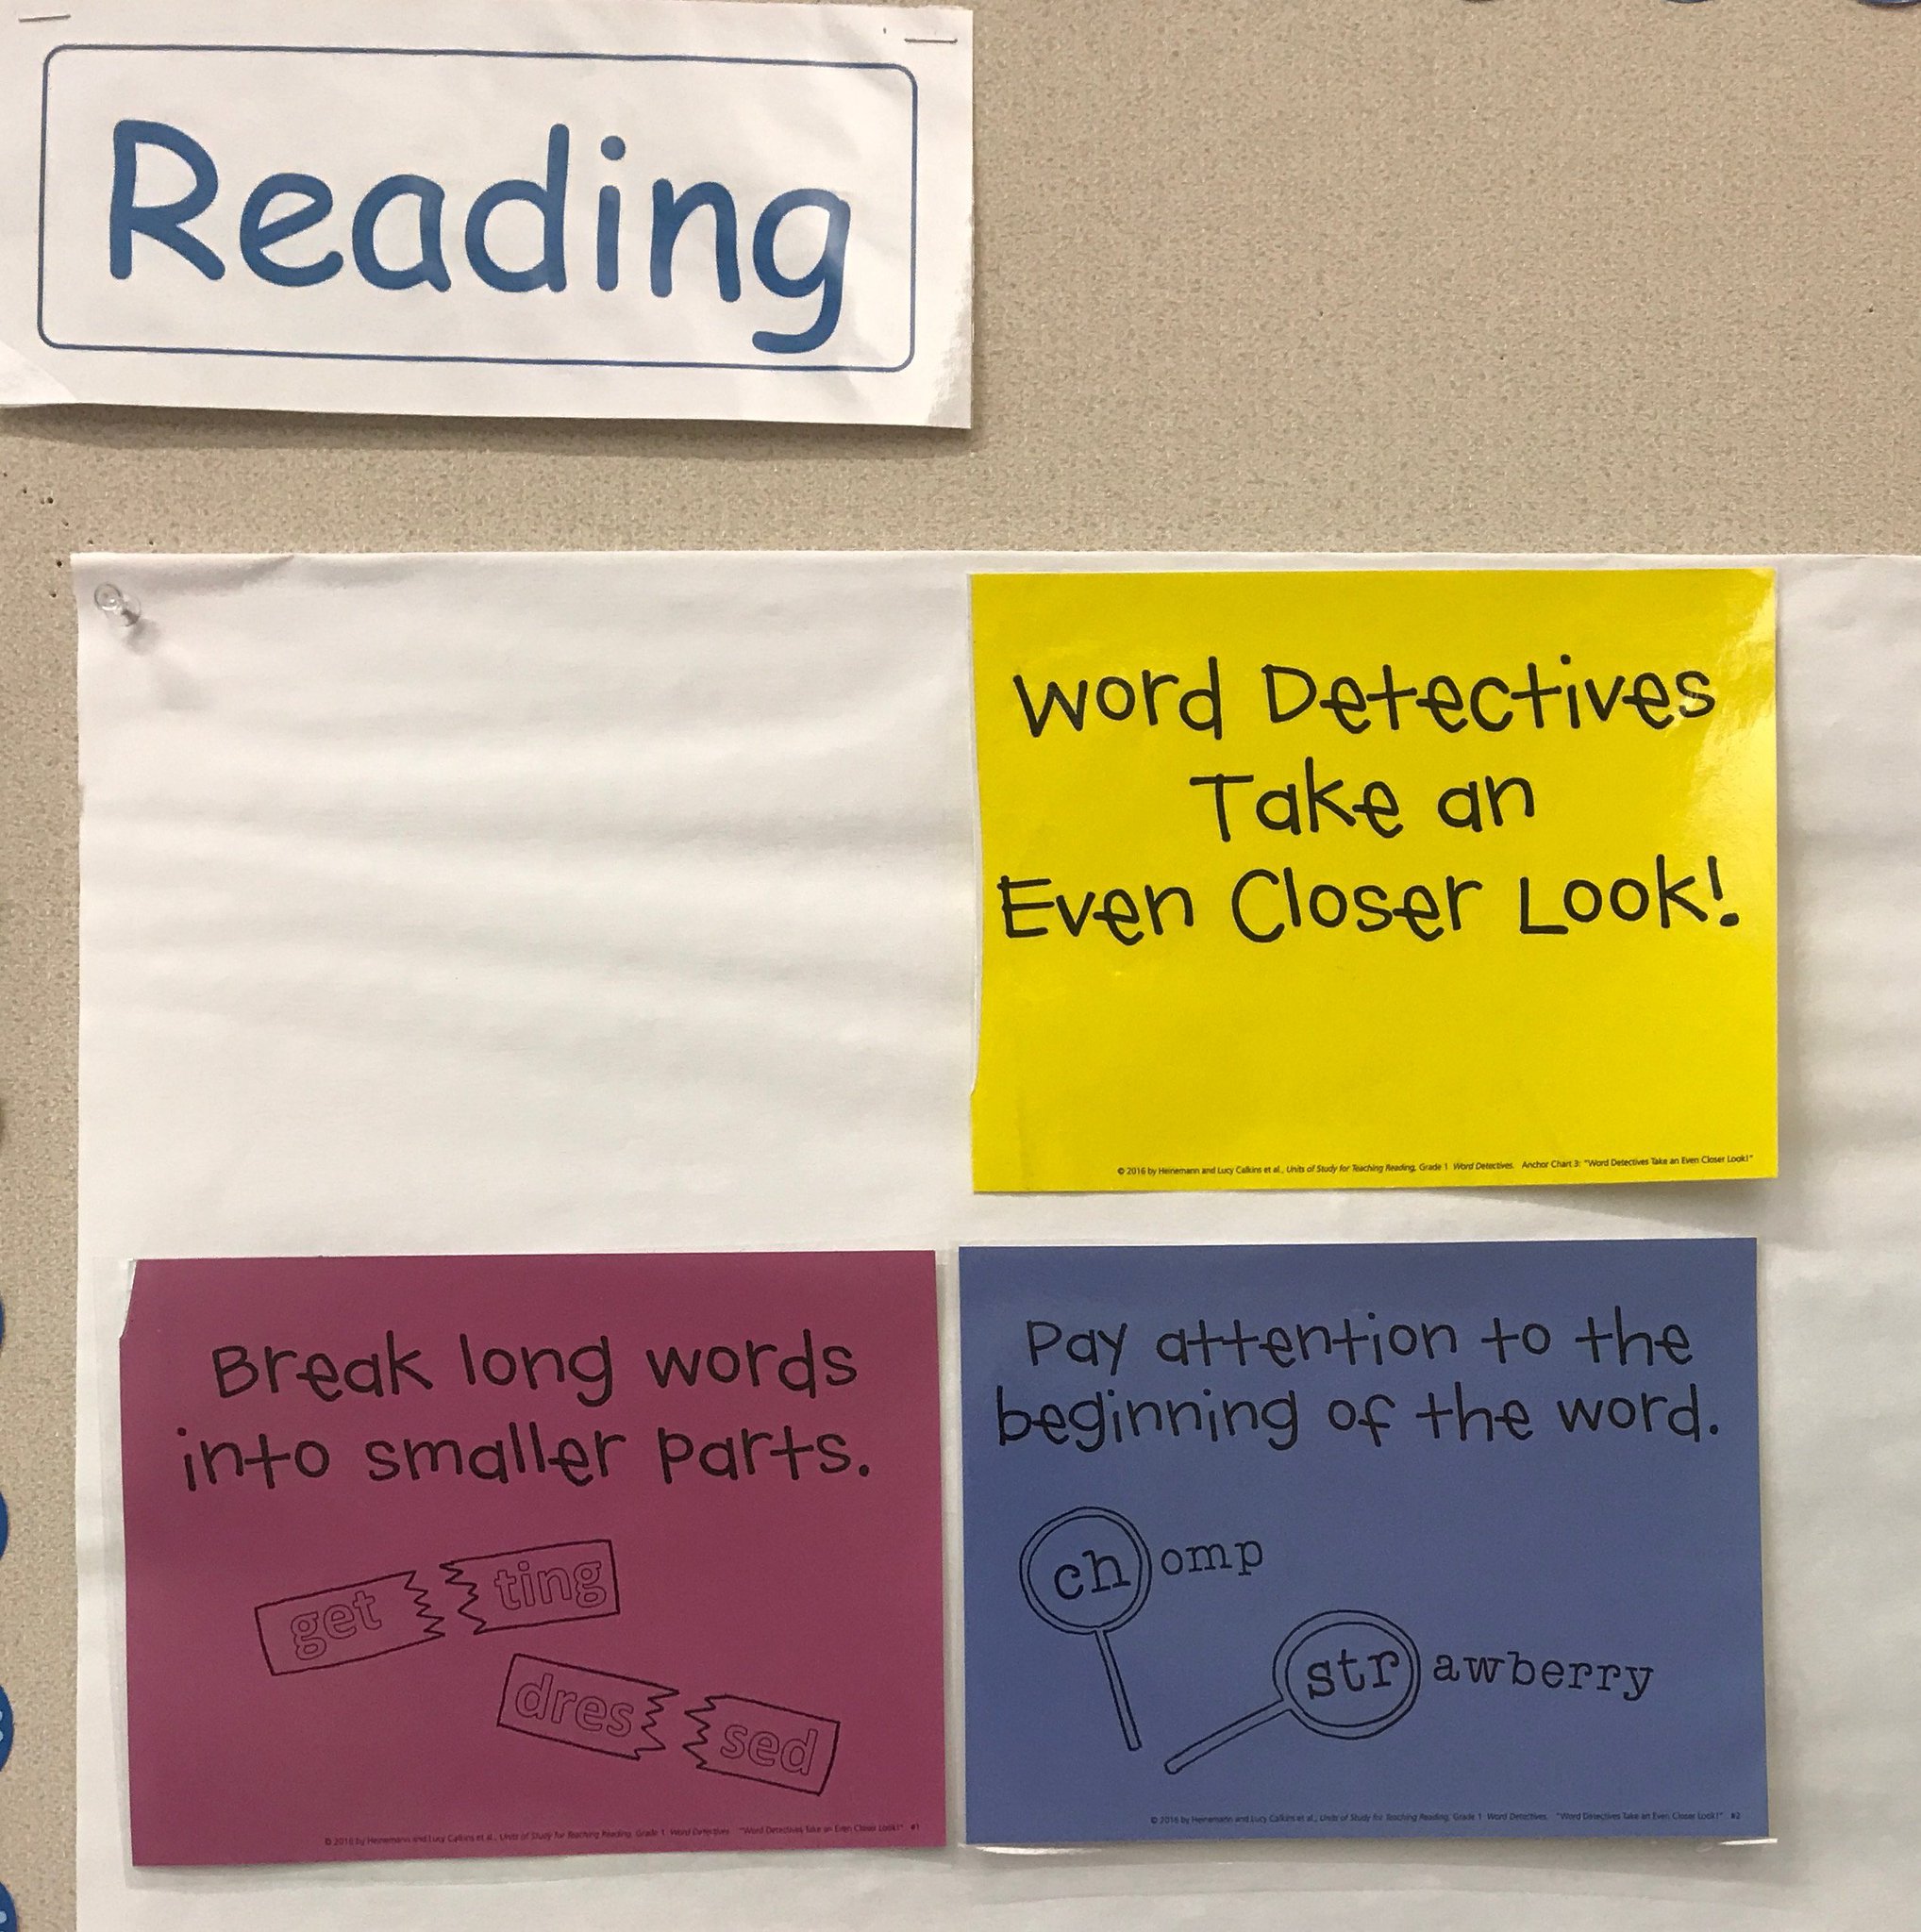 Reading
Word Detectives
Take an
Even Closer Look!
© 2016 by Heinemann and Lucy Calkins et al., Units of Study for Teaching Reading, Grade 1 Word Detectives. Anchor Chart 3: "Word Detectives Take an Even Closer Look!"
Break long words
into smaller parts.
get ting
dres sed
© 2016 by Heinemann and Lucy Calkins et al., Units of Study for Teaching Reading, Grade 1 Word Detectives. "Word Detectives Take an Even Closer Look!" #1
Pay attention to the
beginning of the word.
chomp
strawberry
© 2016 by Heinemann and Lucy Calkins et al., Units of Study for Teaching Reading, Grade 1 Word Detectives. "Word Detectives Take an Even Closer Look!" #2